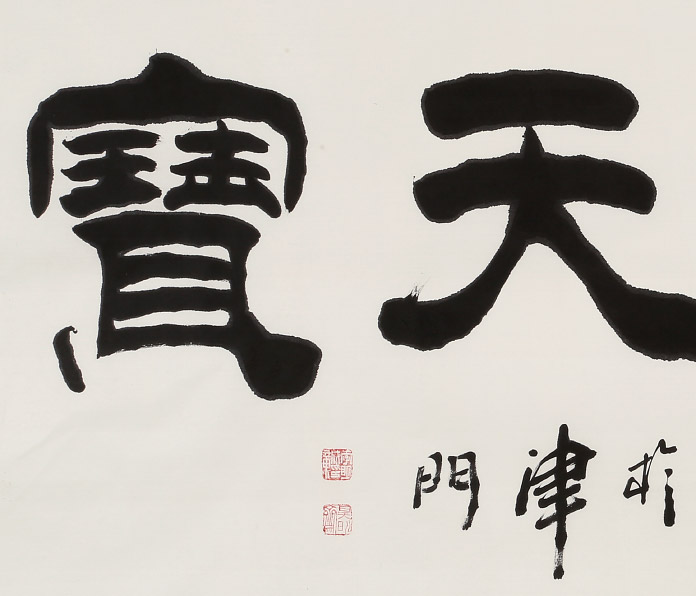 天寶
於津門